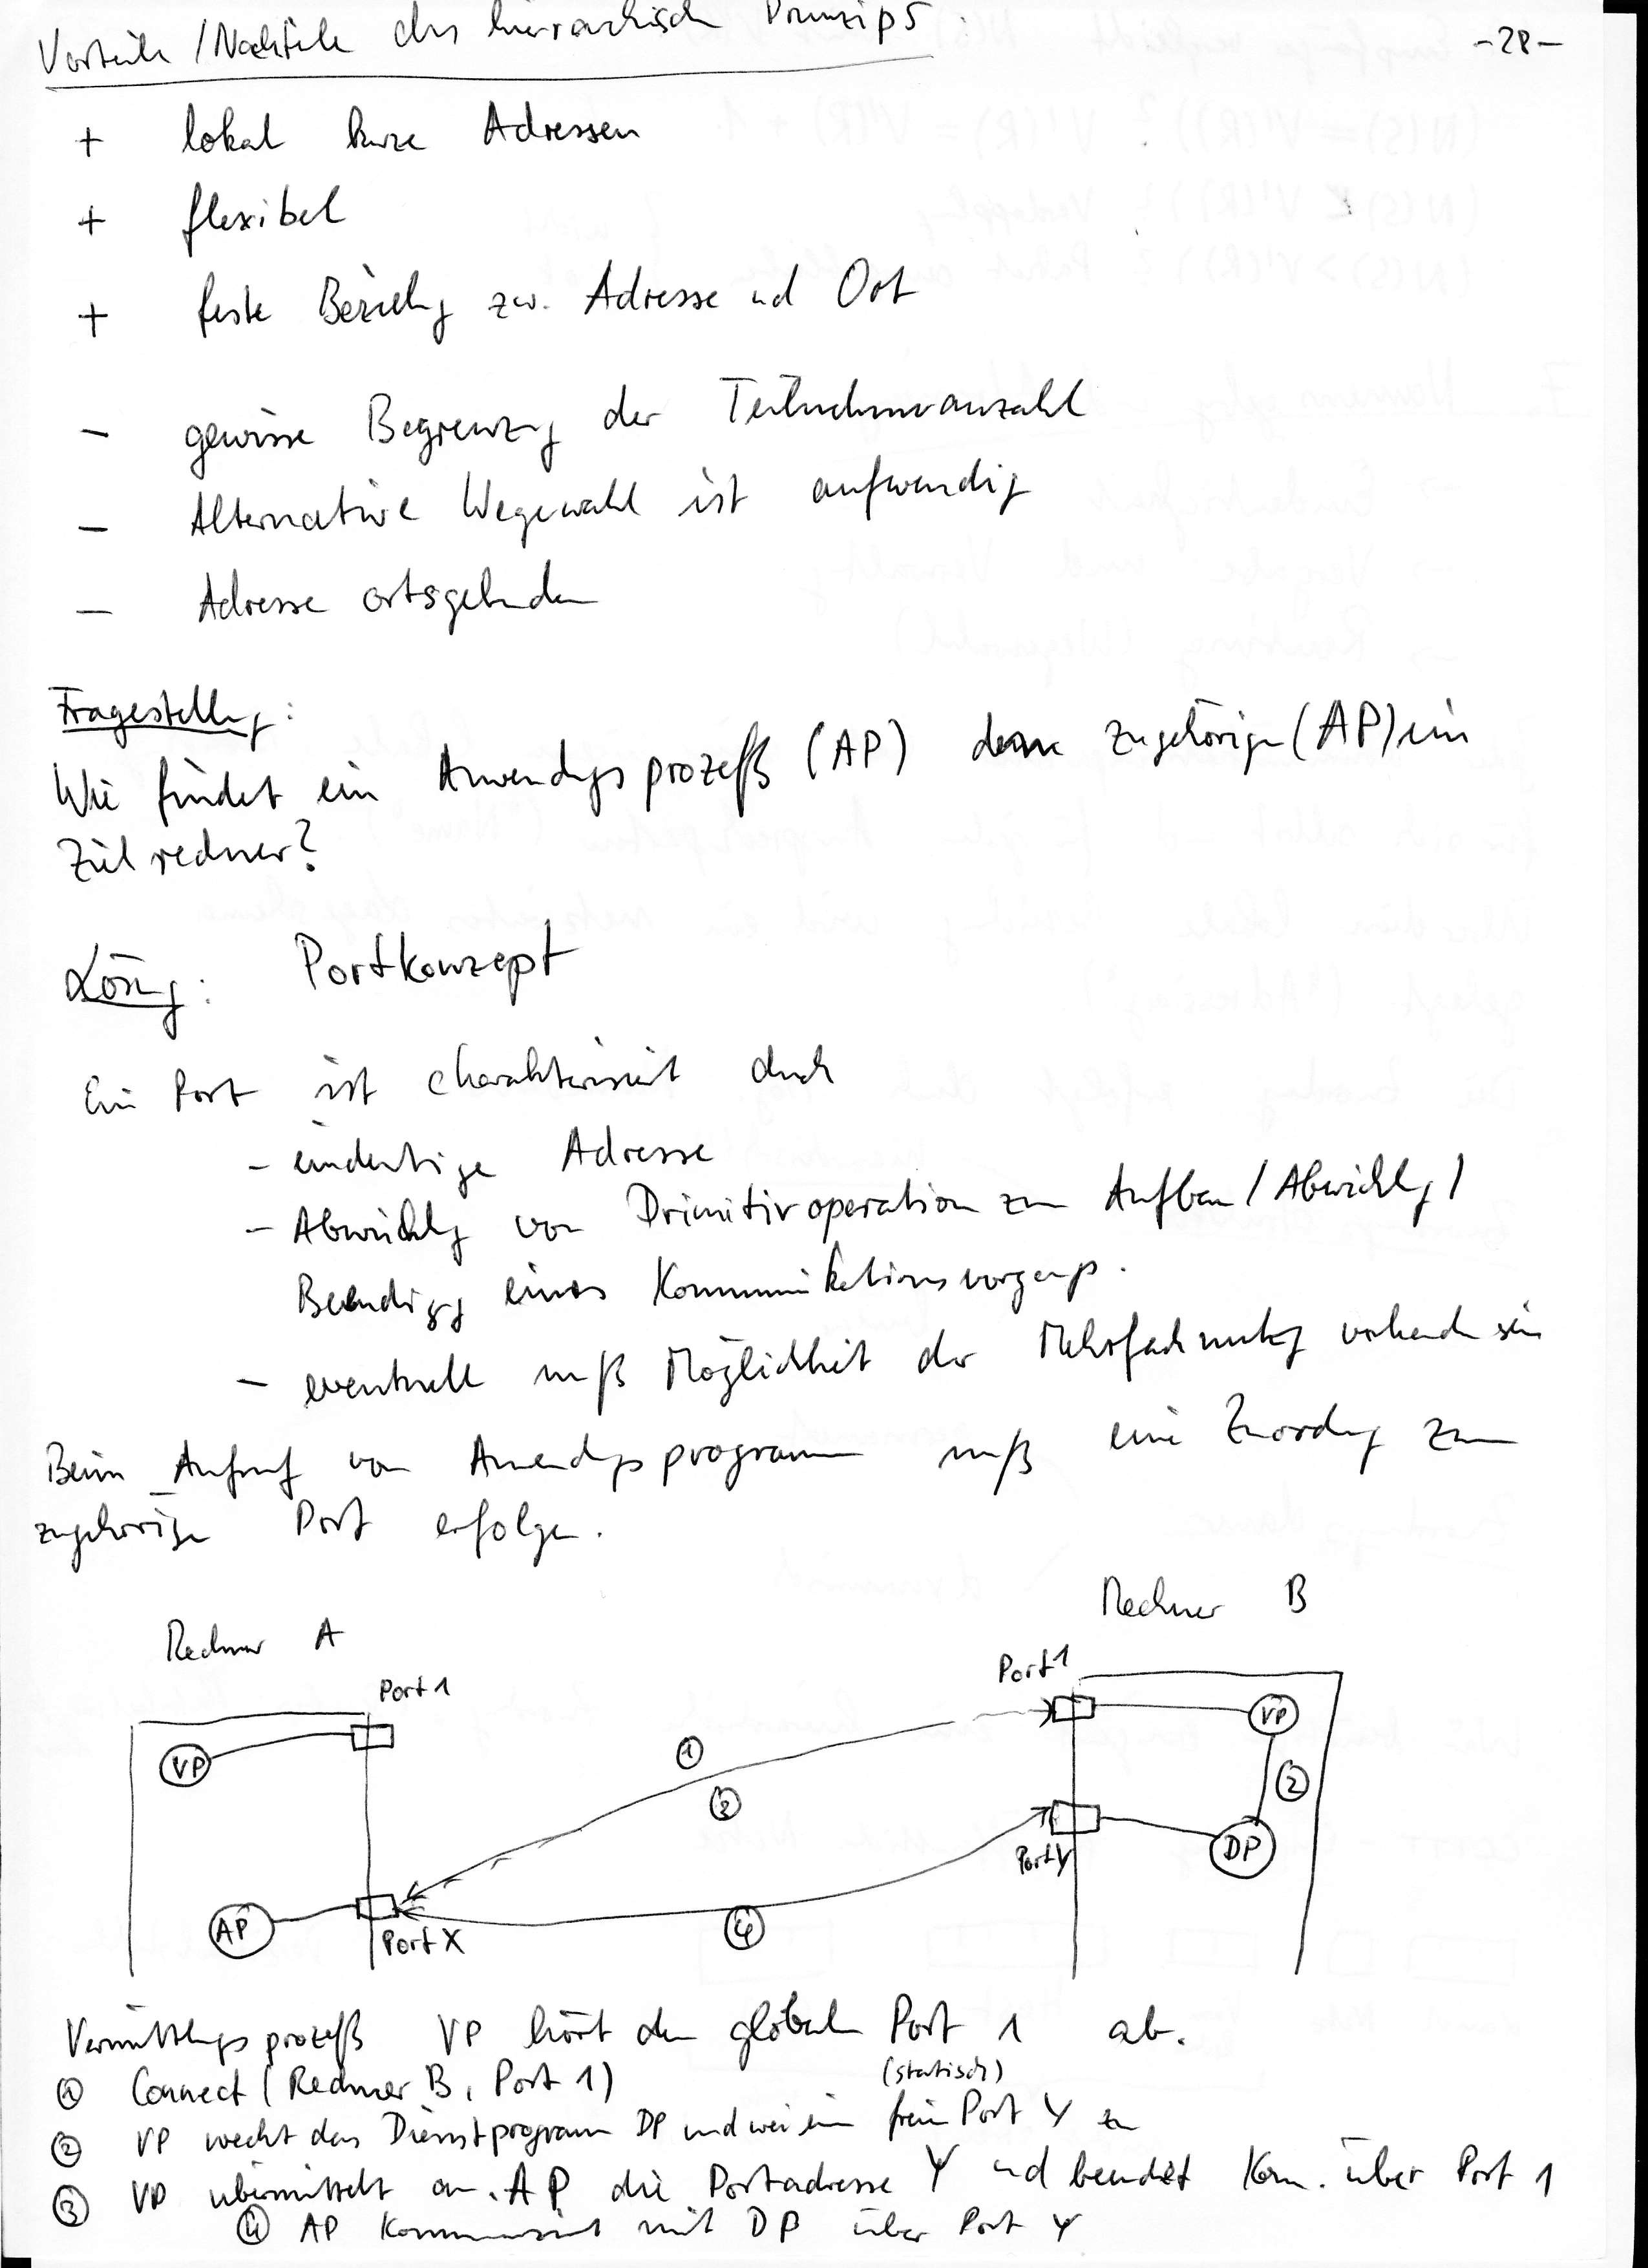 Vorteile / Nachteile des hierarchisch Prinzips :
-28-
+ lokal kurze Adressen
+ flexibel
+ feste Beziehung zw. Adresse und Ort
- gewisse Begrenzung der Teilnehmeranzahl
- Alternative Wegewahl ist aufwendig
- Adresse ortsgebunden
Fragestellung:
Wie findet ein Anwendungsprozeß (AP) zugehörigen (AP) im
Zielrechner?
Lösung: Portkonzept
Ein Port ist charakterisiert durch
- eindeutige Adresse
- Abwicklung von Primitivoperation zum Aufbau / Abwicklung /
Beendigung eines Kommunikationsvorgangs.
- eventuell muß Möglichkeit der Mehrfachnutzung vorhanden sein
Beim Aufruf von Anwendungsprogramm muß eine Zuordnung zum
zugehörigen Port erfolgen.
Rechner A
Rechner B
Port 1
Port 1
VP
VP
①
③
②
Port Y
DP
AP
Port X
④
Vermittlungsprozeß VP hört den globalen Port 1 ab.
(statisch)
① Connect (Rechner B, Port 1)
② VP weckt das Dienstprogramm DP und weist ein freien Port Y zu
③ VP übermittelt an AP die Portadresse Y und beendet Kom. über Port 1
④ AP kommuniziert mit DP über Port Y